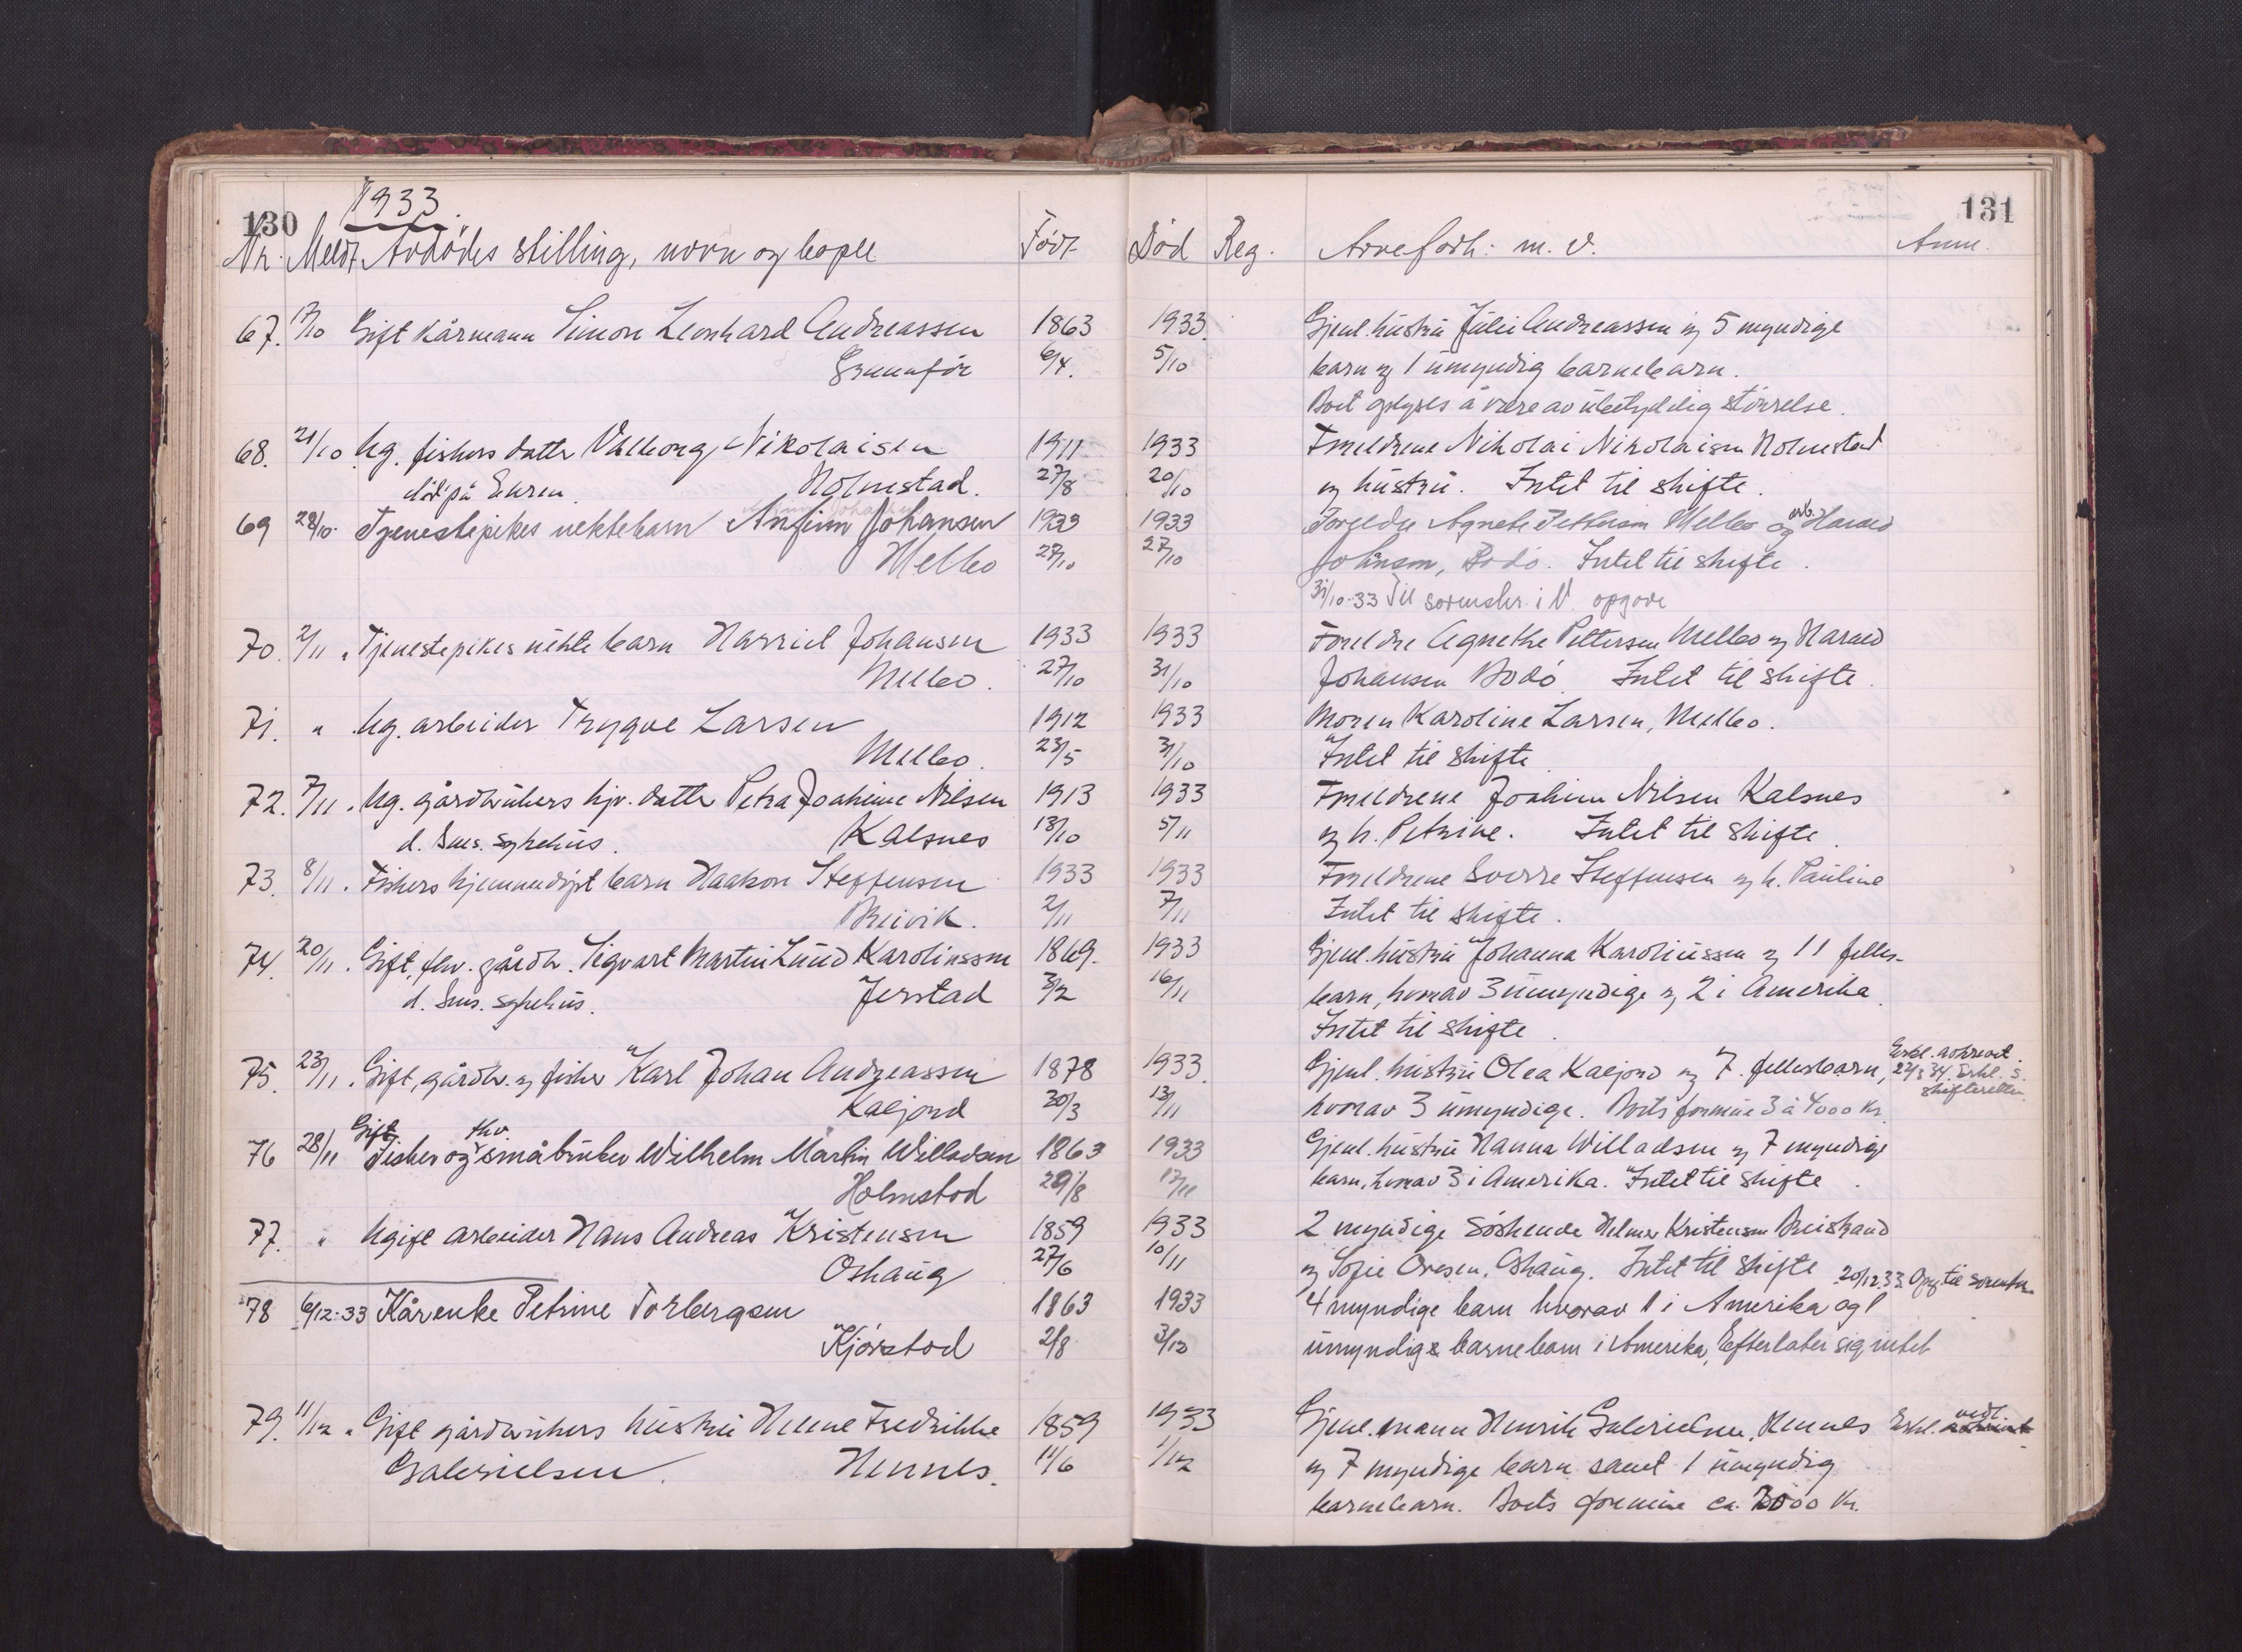 130
1933
131
Nr. Meldt Avdødes stilling, navn og bopel Født Død Reg. Arveforh: m. v. Anm.
67. /10 Gift kårmann Simon Leonhard Andreassen 1863 1933. Gjenl. hustru Julie Andreassen og 5 myndige
6/4. 5/10 barn og 1 umyndig barnebarn.
Boet oplyses å være av ubetydelig størrelse.
68. 21/10 Ug. fiskers datter Valborg Nikolaisen 1911 1933 Foreldrene Nikolai Nikolaisen Holmstad
død på Holmstad. 27/8 20/10 og hustru. Intet til skifte.
69 28/10 Tjenestepikes uektebarn Anfinn Johansen 1933 1933 Foreldre Agnethe Pettersen Melbo og arb. Harald
Melbo 27/10 27/10 Johansen, Bodø. Intet til skifte.
31/10-33 Til sorenskr. i V. opgave
70. 2/11 " Tjenestepikes uekte barn Harriet Johansen 1933 1933 Foreldre Agnethe Pettersen Melbo og Harald
Melbo. 27/10 31/10 Johansen Bodø. Intet til skifte.
71. " Ug. arbeider Trygve Larsen 1912 1933 Moren Karoline Larsen, Melbo.
Melbo. 23/5 31/10 Intet til skifte
72. 7/11. Ug. gårdbrukers hjv. datter Petra Joakime Nilsen 1913 1933 Foreldrene Joakim Nilsen Kalsnes
d. Sms. sykehus. Kalsnes 13/10 5/11 og h. Petrine. Intet til skifte.
73. 8/11. Fiskers hjemmedøpt barn Haakon Steffensen 1933 1933 Foreldrene Sverre Steffensen og h. Pauline
Breivik. 2/11 7/11 Intet til skifte.
74. 20/11. Gift, fhv. gårdbr. Sigvart Martin Lund Karoliussen 1869. 1933 Gjenl. hustru Johanna Karoliussen og 11 felles-
d. Sms. sykehus. Jerstad 3/2 16/11 barn, hvorav 3 umyndige og 2 i Amerika.
Intet til skifte.
75. 23/11. Gift, gårdbr. og fisker Karl Johan Andreassen 1878 1933. Gjenl. hustru Olea Kaljord og 7 fellesbarn, Erkl. avkrevet.
Kaljord 30/3 13/11 hvorav 3 umyndige. Boets formue 3 à 4000 kr. Erkl. s. skifteretten
76 28/11 Gift Fisker og fhv. småbruker Wilhelm Martin Willadsen 1863 1933 Gjenl. hustru Hanna Willadsen og 7 myndige
Holmstad 29/8 17/11 barn, hvorav 3 i Amerika. Intet til skifte.
77. " Ugift arbeider Hans Andreas Kristensen 1859 1933 2 myndige søskende Helmer Kristensen Breistrand
Oshaug 27/6 10/11 og Sofie Ovesen, Oshaug. Intet til skifte 20/12 33. Opg. til sorenskr.
78 6/12-33 Kårenke Petrine Torbergsen 1863 1933 4 myndige barn hvorav 1 i Amerika og 1
Kjørstad 2/8 3/12 umyndige barnebarn i Amerika, Efterlater sig intet
79. 11/12 " Gift gårdbrukers hustru Helene Fredrikke 1859 1933 Gjenl. mann Henrik Gabrielsen, Hennes Erkl. vedl.
Gabrielsen. Hennes. 11/6 1/12 og 7 myndige barn samt 1 umyndig
barnebarn. Boets formue ca. 3000 kr.